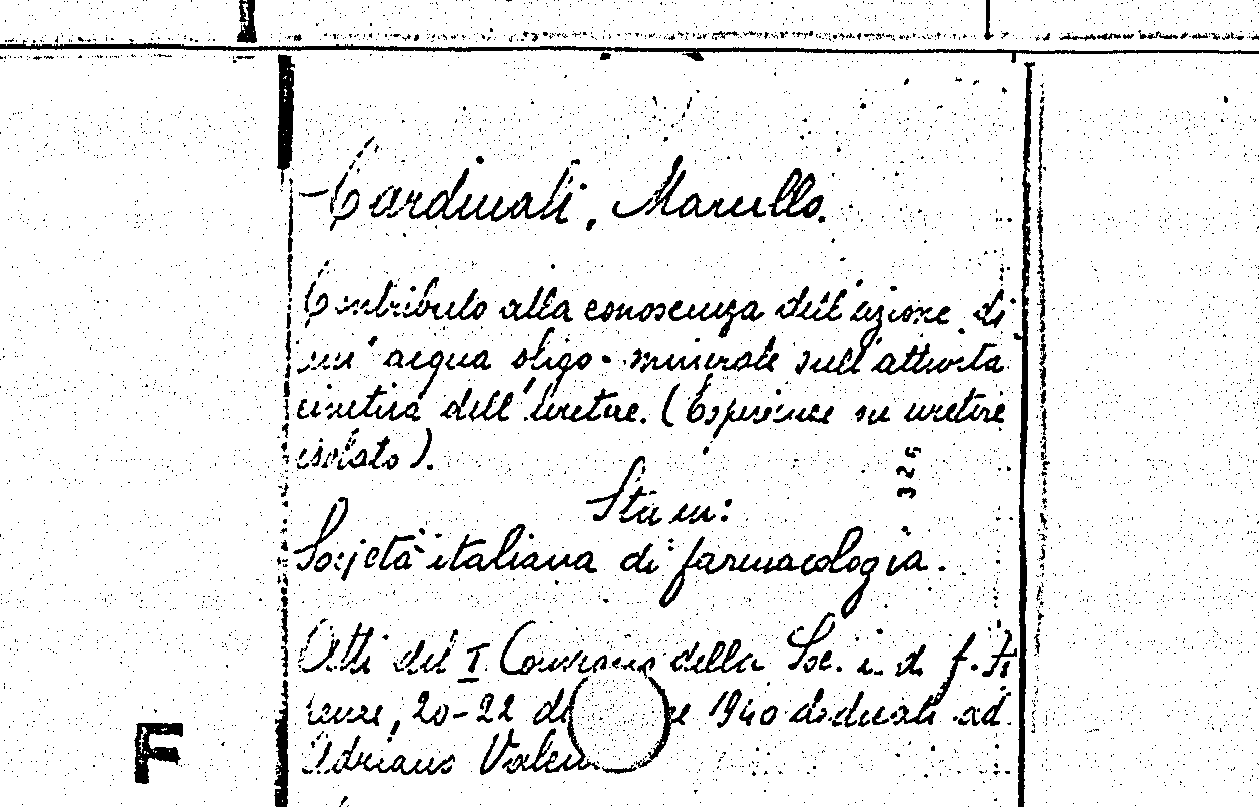 Cardinali, Marcello.
Contributo alla conoscenza dell'azione di
un'acqua oligo-minerale sull'attività
cinetica dell'uretere. (Esperienze su uretere
isolato).
326
Sta in:
Società italiana di farmacologia.
Atti del I Convegno della Soc. i. d. f. Fi
renze, 20-22 1940 dedicati ad
Adriano
F